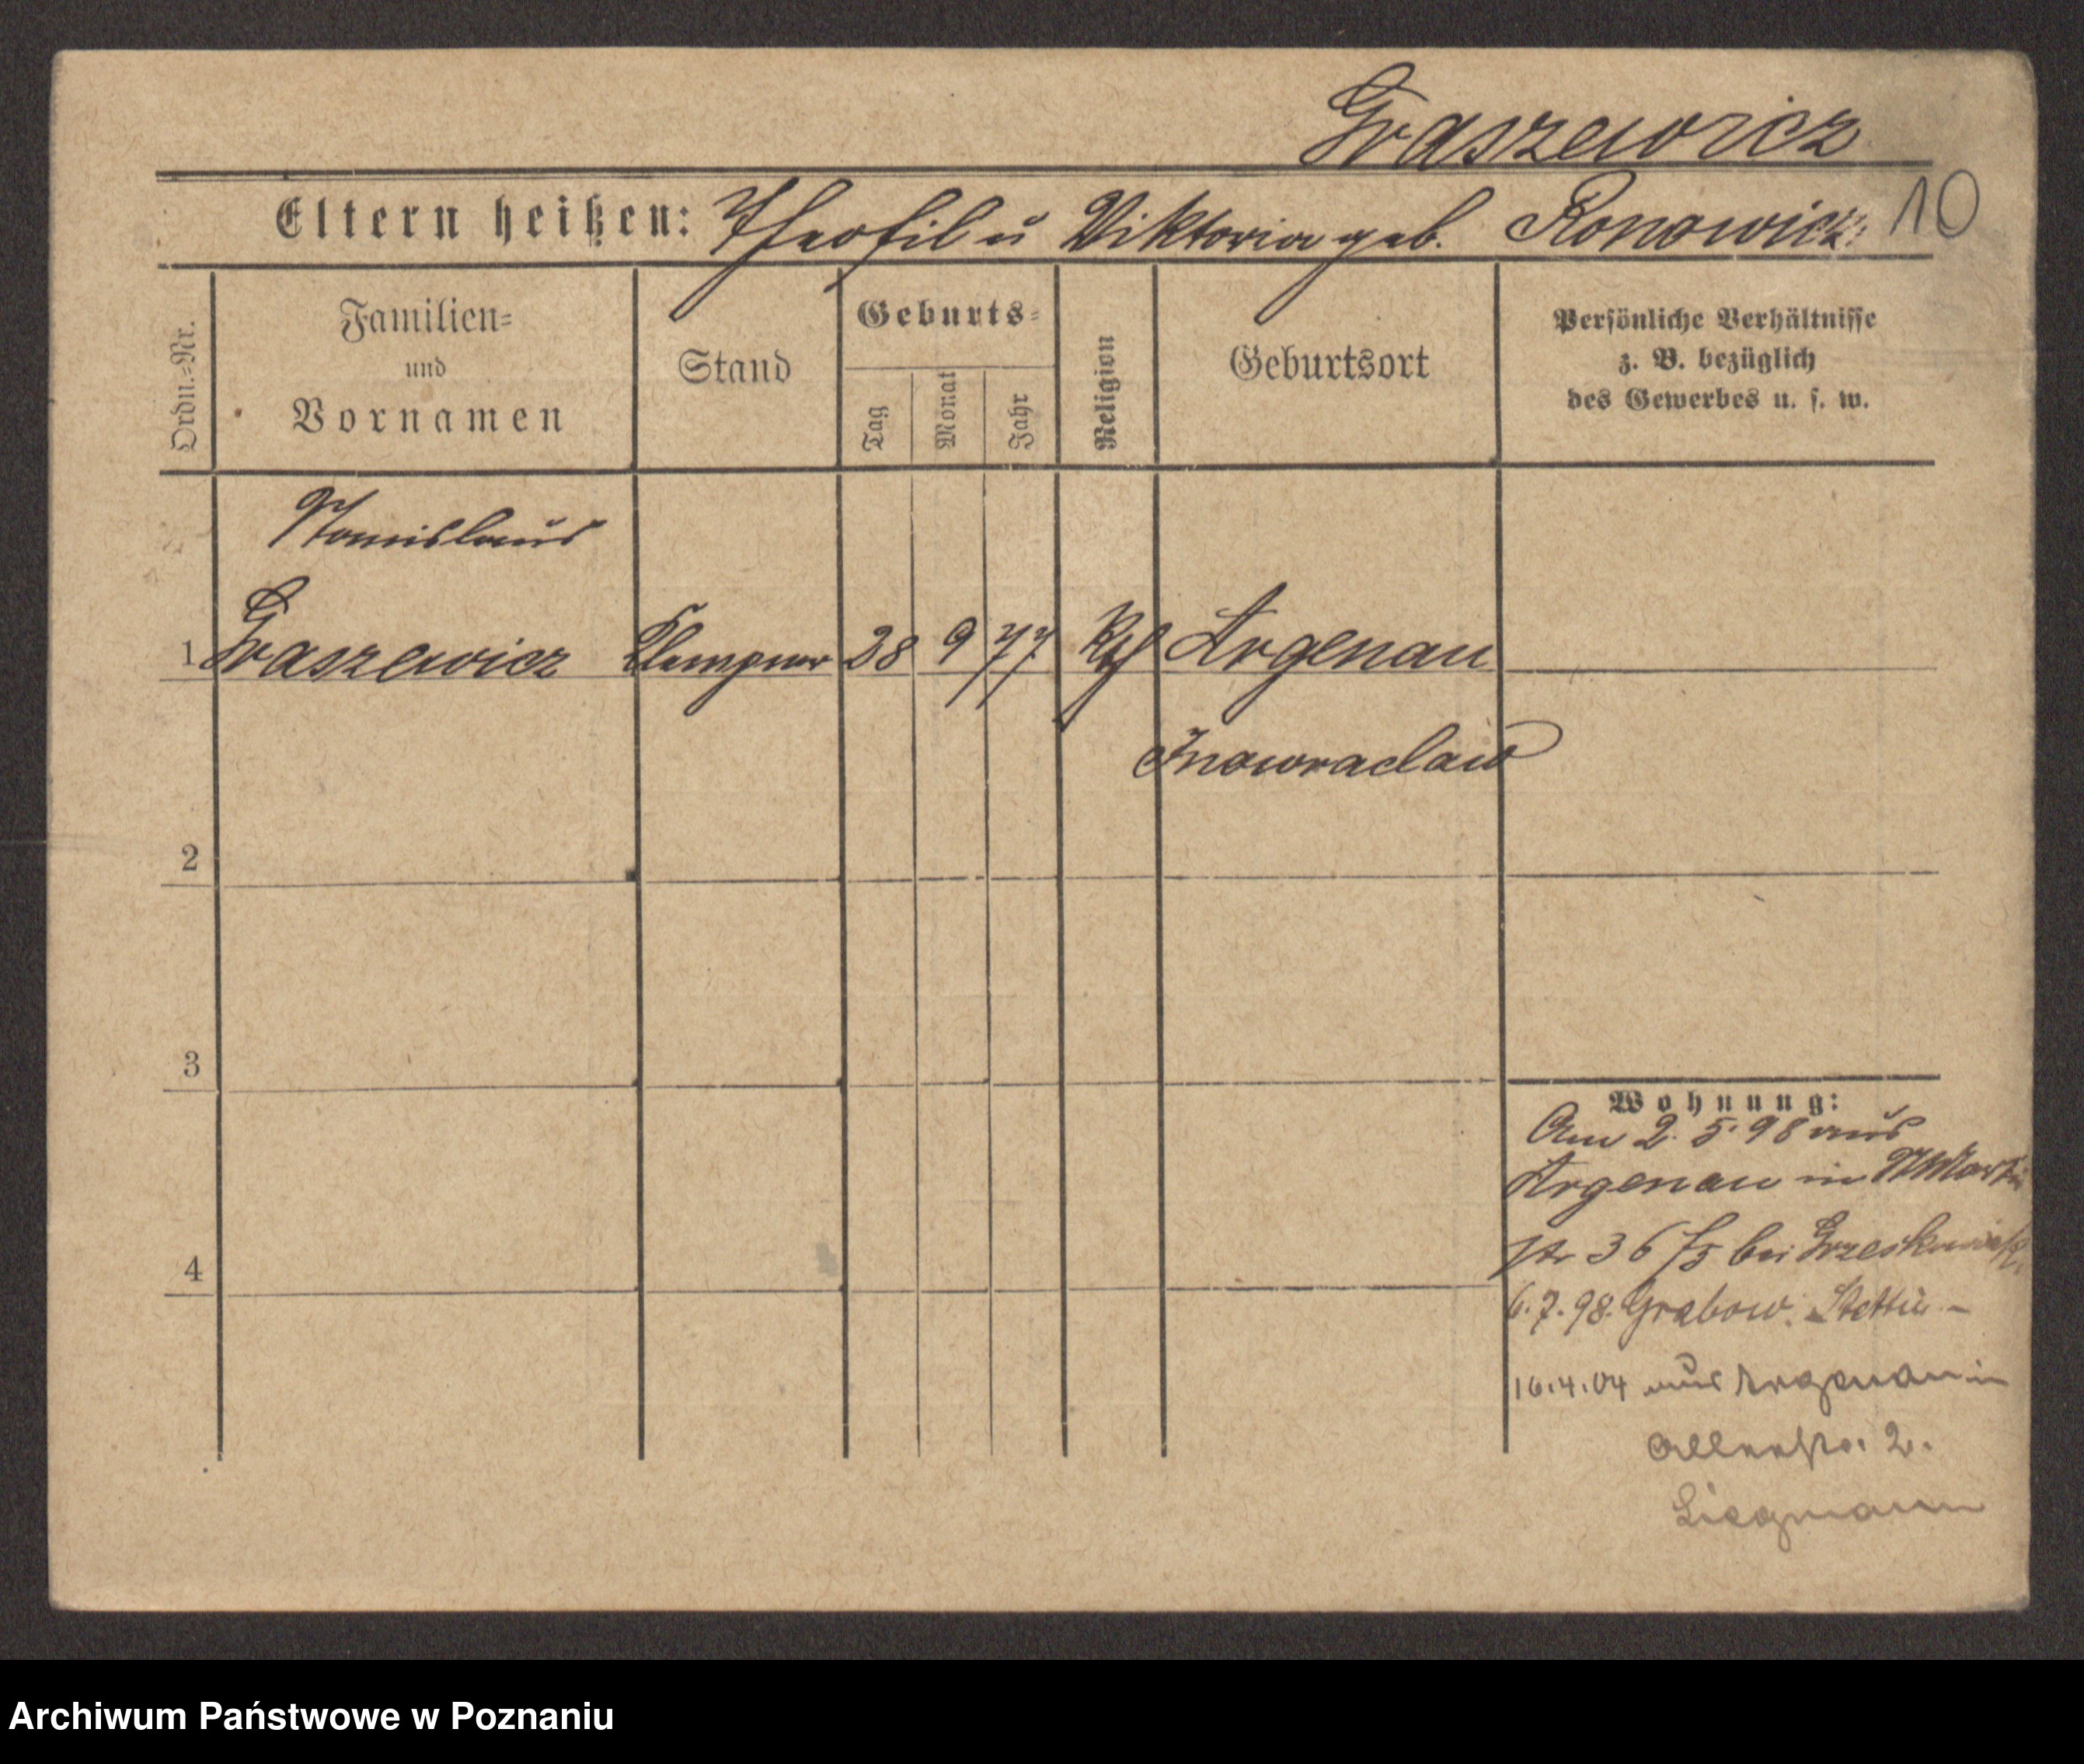 Graszewicz
10
Eltern heißen: Theofil u Viktoria geb. Ronowicz
Ordn.=Nr.
Familien=
und
Vornamen
Stand
Geburts=
Tag
Monat
Jahr
Religion
Geburtsort
Persönliche Verhältnisse
z. B. bezüglich
des Gewerbes u. s. w.
Stanislaus
1 Graszewicz Klempner 28 9 77 Argenau
Inowraclaw
2
3
Wohnung:
Am 2. 5. 98 aus
Argenau in St Martin
str 36 bei
4
6.7.98. Grabow. Stettin -
16.4.04 aus Argenau in
2.
Siegmann
Archiwum Państwowe w Poznaniu